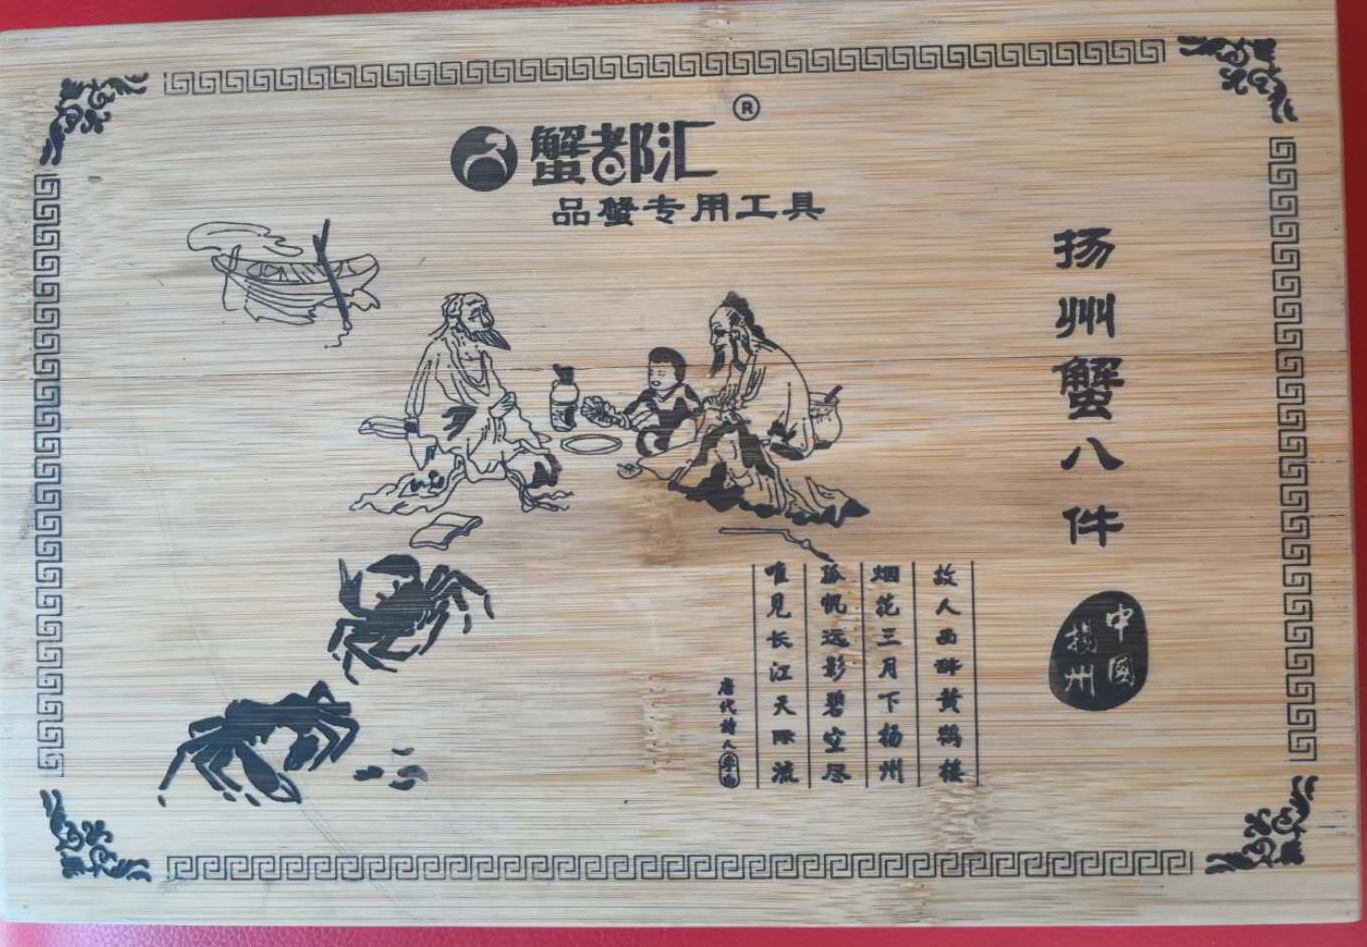 蟹都汇®
品蟹专用工具
扬州蟹八件
中國
揚州
故人西辞黄鹤楼
烟花三月下扬州
孤帆远影碧空尽
唯见长江天际流
唐代诗人李白